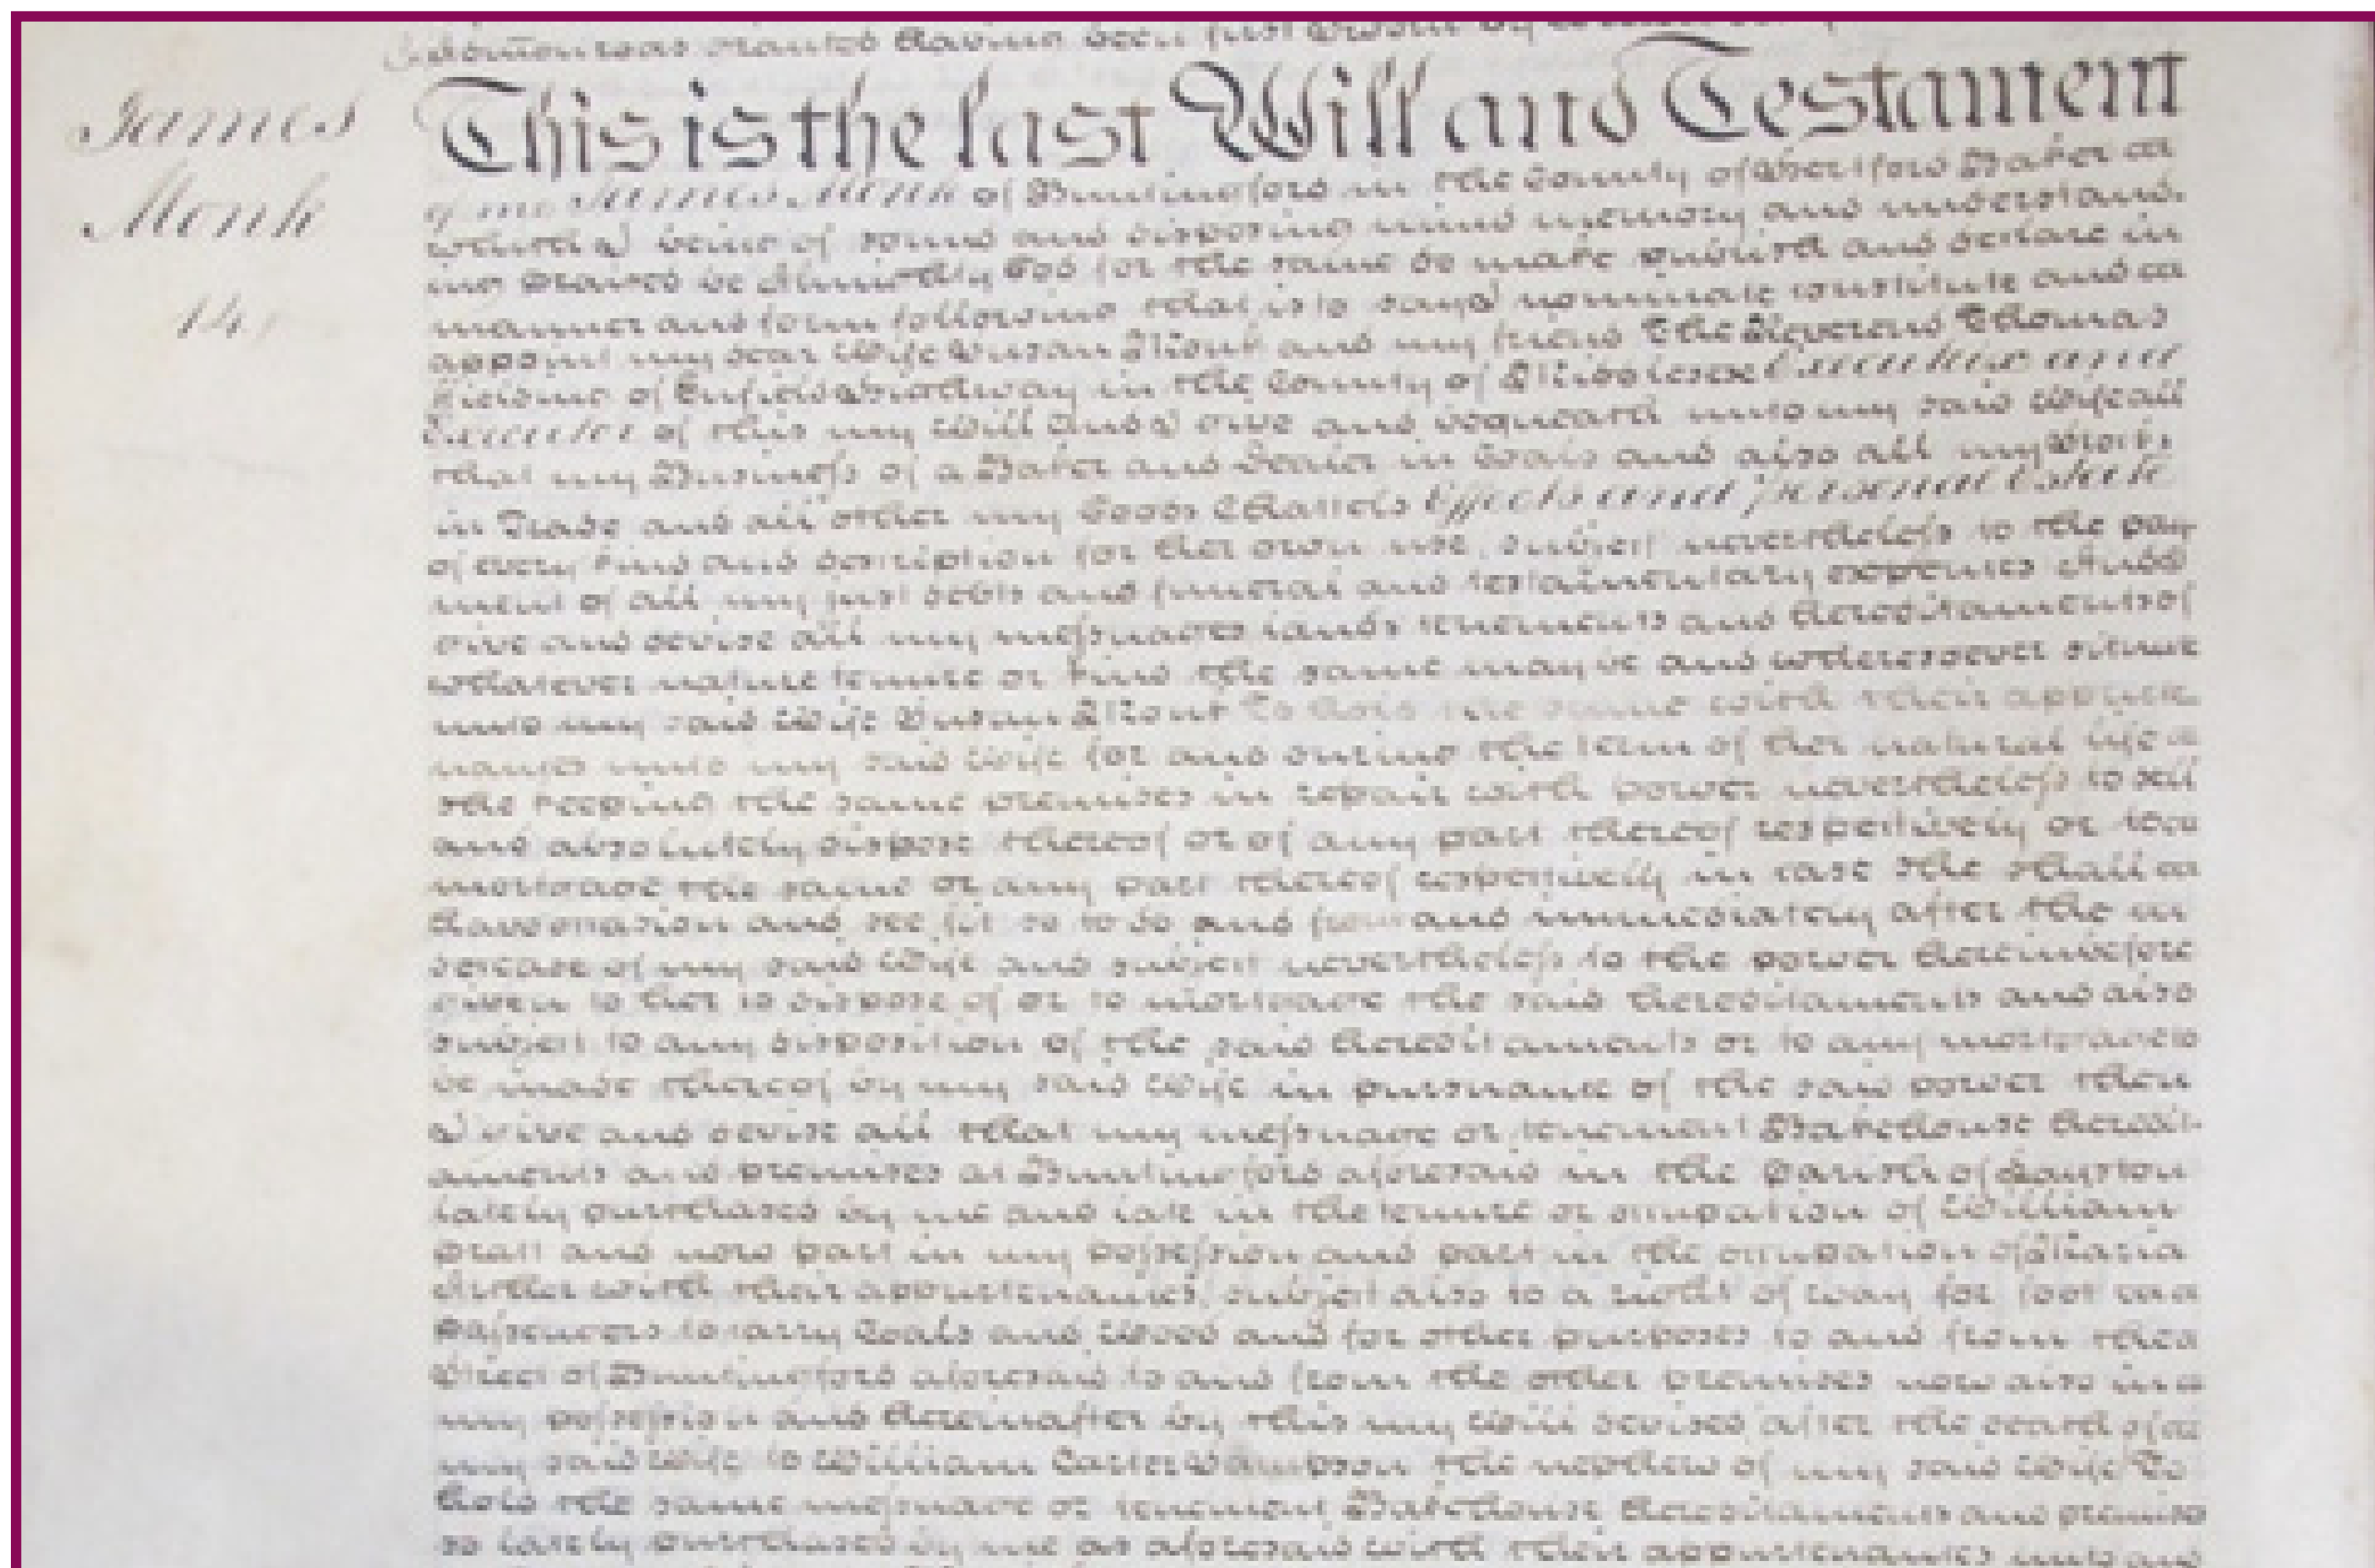 Administration was granted having been first sworn by
James
Monk
14
This is the last Will and Testament
of me James Monk of Buntingford in the County of Hertford Baker
which I being of sound and disposing mind memory and understand-
ing praised be Almighty God for the same do make publish and declare in
manner and form following that is to say I nominate constitute and
appoint my dear Wife Susan Monk and my friend The Reverend Thomas
of Enfield Highway in the County of Middlesex Executrix and
Executor of this my Will And I give and bequeath unto my said Wife all
that my Business of a Baker and Dealer in Coals and also all my Stock
in Trade and all other my Goods Chattels Effects and personal Estate
of every kind and description for her own use subject nevertheless to the pay-
ment of all my just debts and funeral and testamentary expences And I
give and devise all my messuages lands tenements and hereditaments of
whatever nature tenure or kind the same may be and wheresoever situate
unto my said Wife Susan Monk To hold the same with their appurte-
nances unto my said Wife for and during the term of her natural life
she keeping the same premises in repair with power nevertheless to sell
and absolutely dispose thereof or of any part thereof respectively or to
mortgage the same or any part thereof respectively in case she shall
have occasion and see fit so to do and from and immediately after the
decease of my said Wife and subject nevertheless to the power hereinbefore
given to her to dispose of or to mortgage the said hereditaments and also
subject to any disposition of the said hereditaments or to any mortgage to
be made thereof by my said Wife in pursuance of the said power then
I give and devise all that my messuage or tenement Bakehouse heredit-
aments and premises at Buntingford aforesaid in the parish of Layston
lately purchased by me and late in the tenure or occupation of William
Pratt and now part in my possession and part in the occupation of Maria
with their appurtenances subject also to a right of way for foot
passengers to carry Coals and Wood and for other purposes to and from the
Street of Buntingford aforesaid to and from the other premises now also in
my possession and hereinafter by this my Will devised after the death of
my said Wife to William Carter Sampson the nephew of my said Wife To
hold the same messuage or tenement Bakehouse hereditaments and premises
so lately purchased by me as aforesaid with their appurtenances unto and